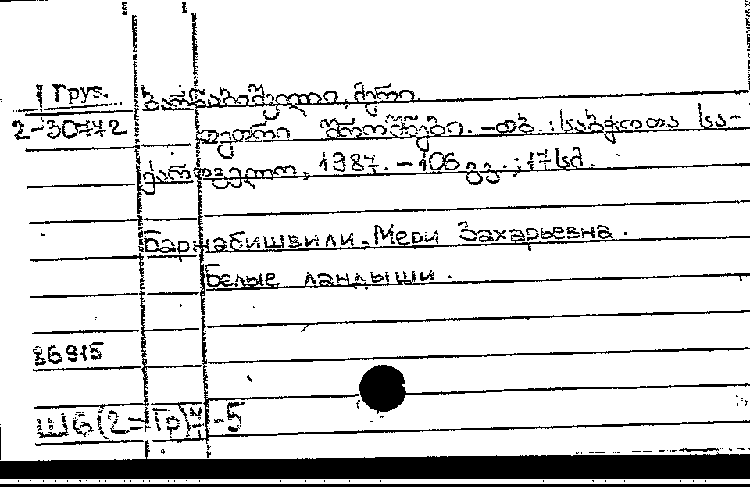 Груз.
ბარნაბიშვილი, მერი
2-30772
თეთრი შროშნები. – თბ. : საბჭოთა სა-
ქართველო, 1987. – 106 გვ. ; 17 სმ.
Барнабишвили, Мери Захарьевна.
Белые ландыши.
86915
Ш6(2=Гр)7-5